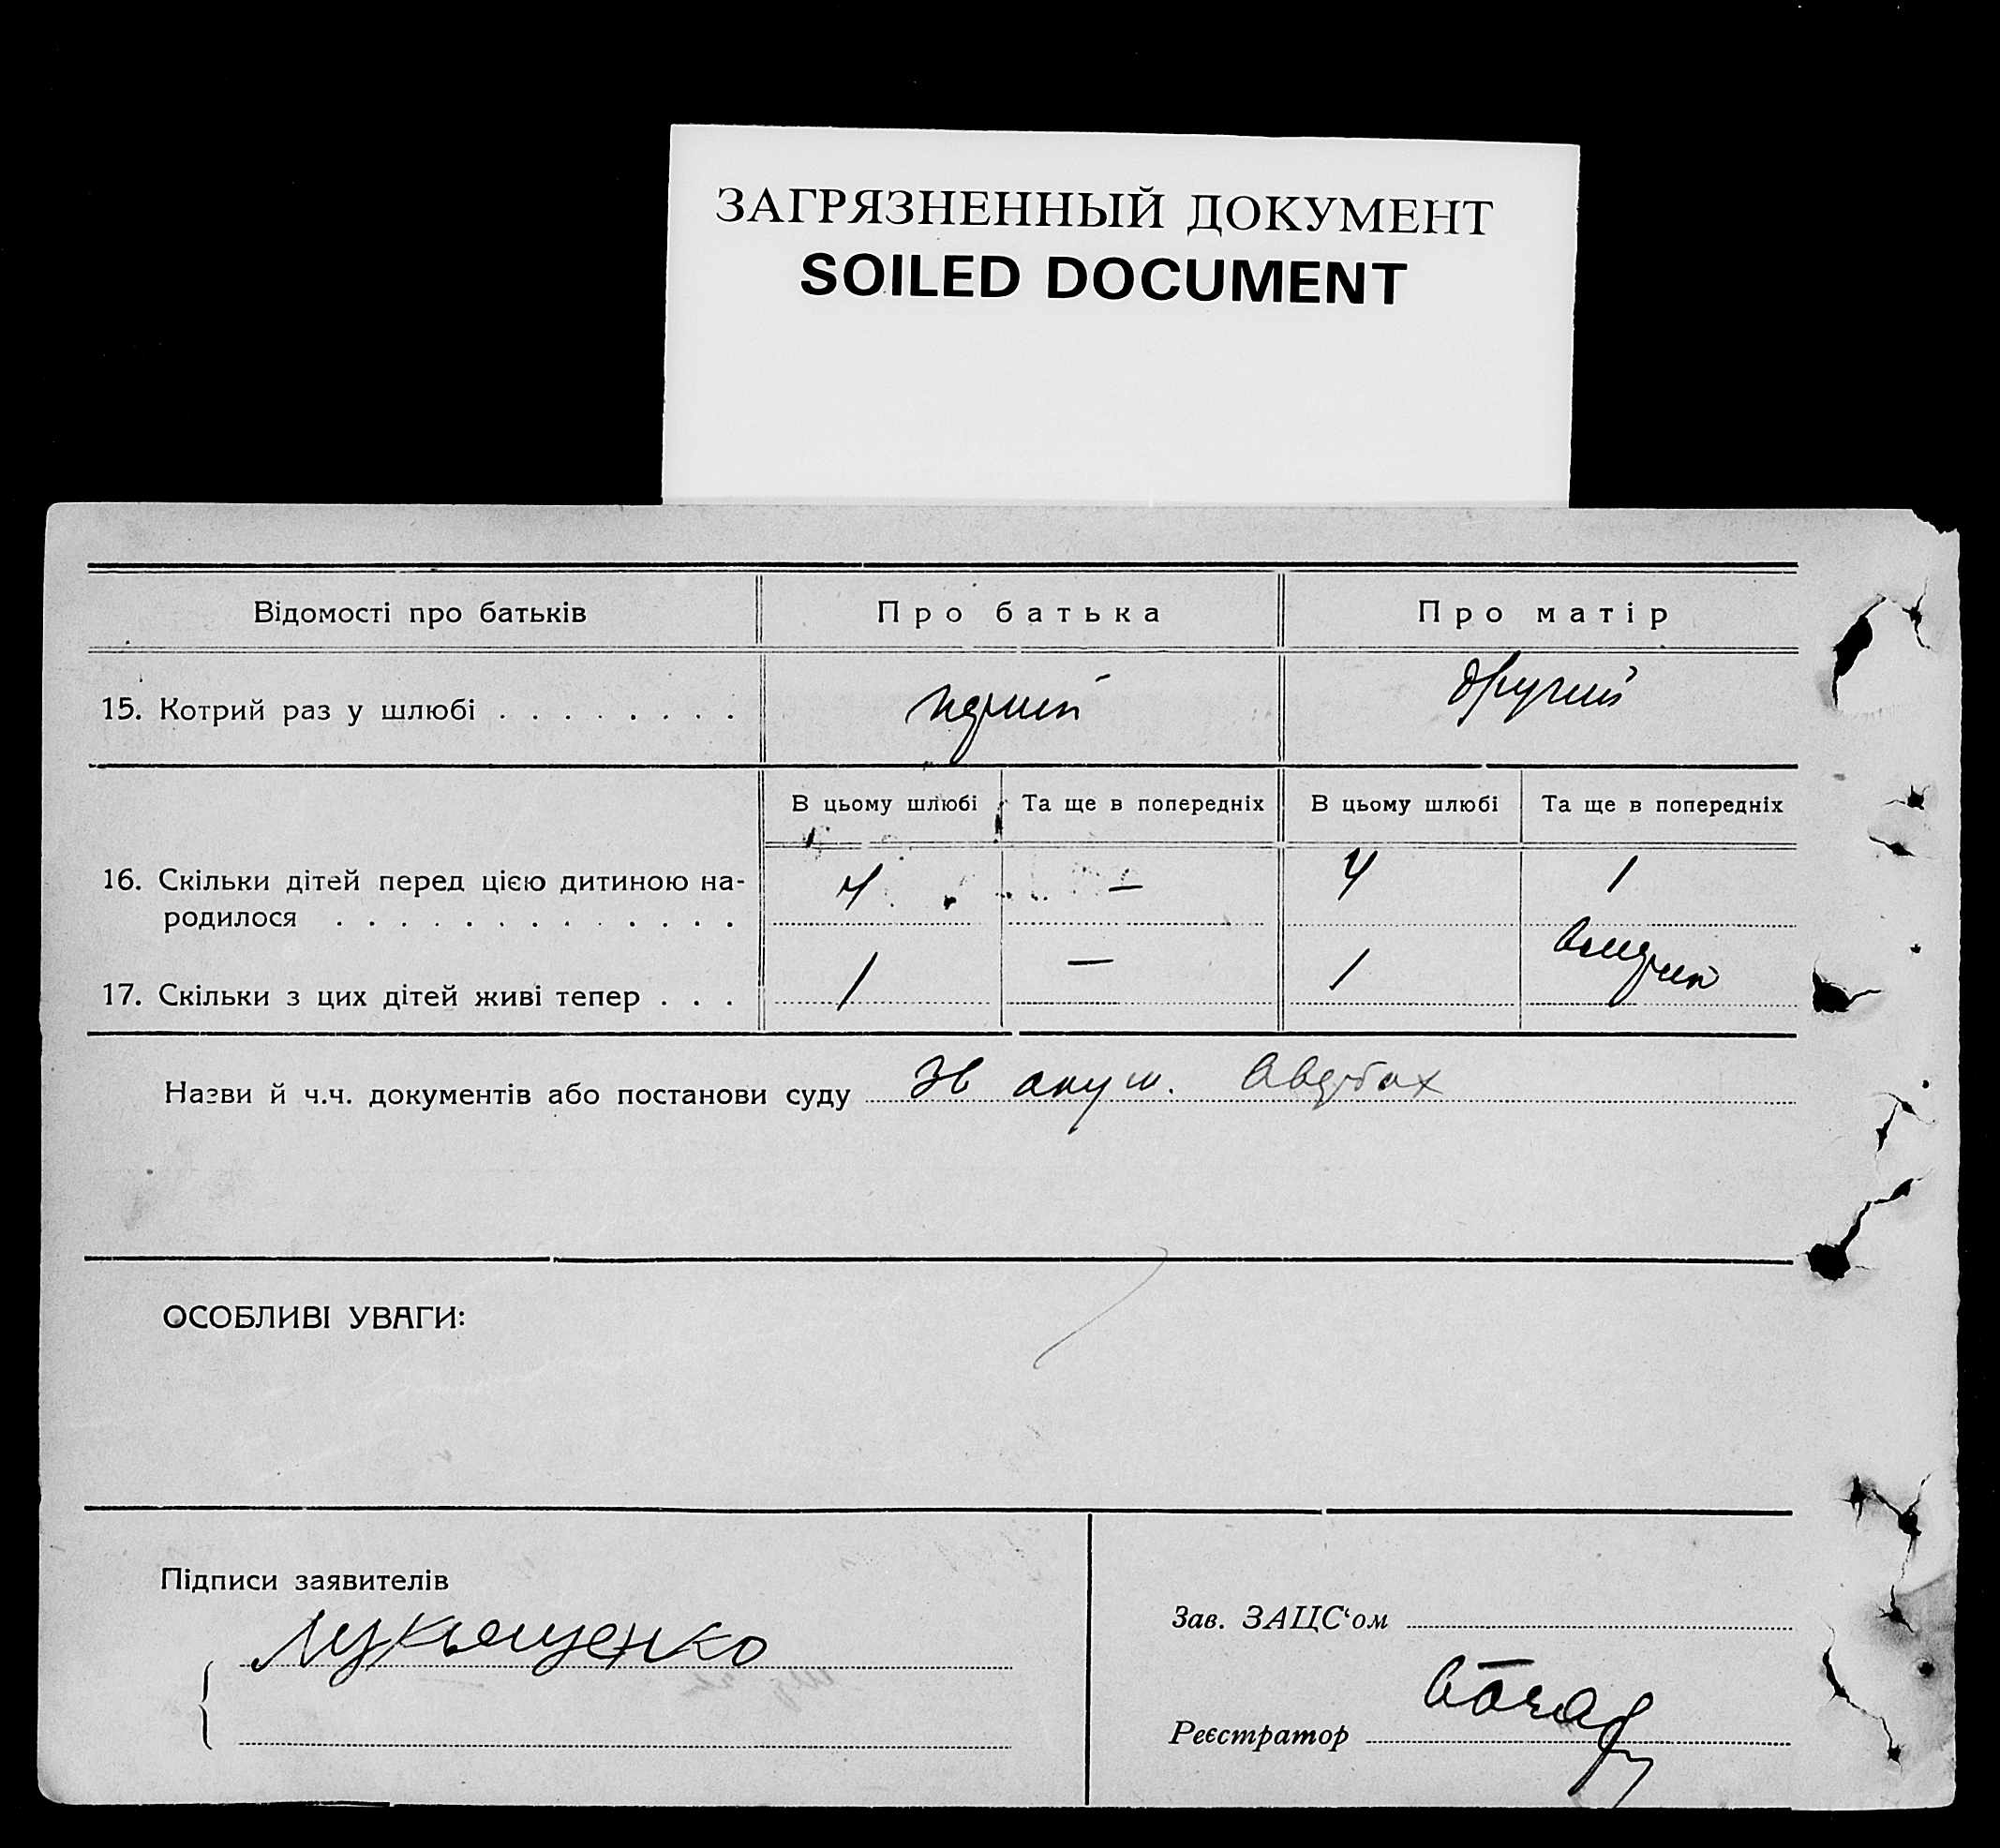 ЗАГРЯЗНЕННЫЙ ДОКУМЕНТ
SOILED DOCUMENT
Відомості про батьків Про батька Про матір
15. Котрий раз у шлюбі . . . . . . . . другий
В цьому шлюбі Та ще в попередніх В цьому шлюбі Та ще в попередніх
16. Скільки дітей перед цією дитиною на-
родилося . . . . . . . . . . . . . 4 — 4 1
17. Скільки з цих дітей живі тепер . . . 1 — 1
Назви й ч.ч. документів або постанови суду
ОСОБЛИВІ УВАГИ:
Підписи заявителів
Лукьященко
Зав. ЗАЦС‘ом
Реєстратор